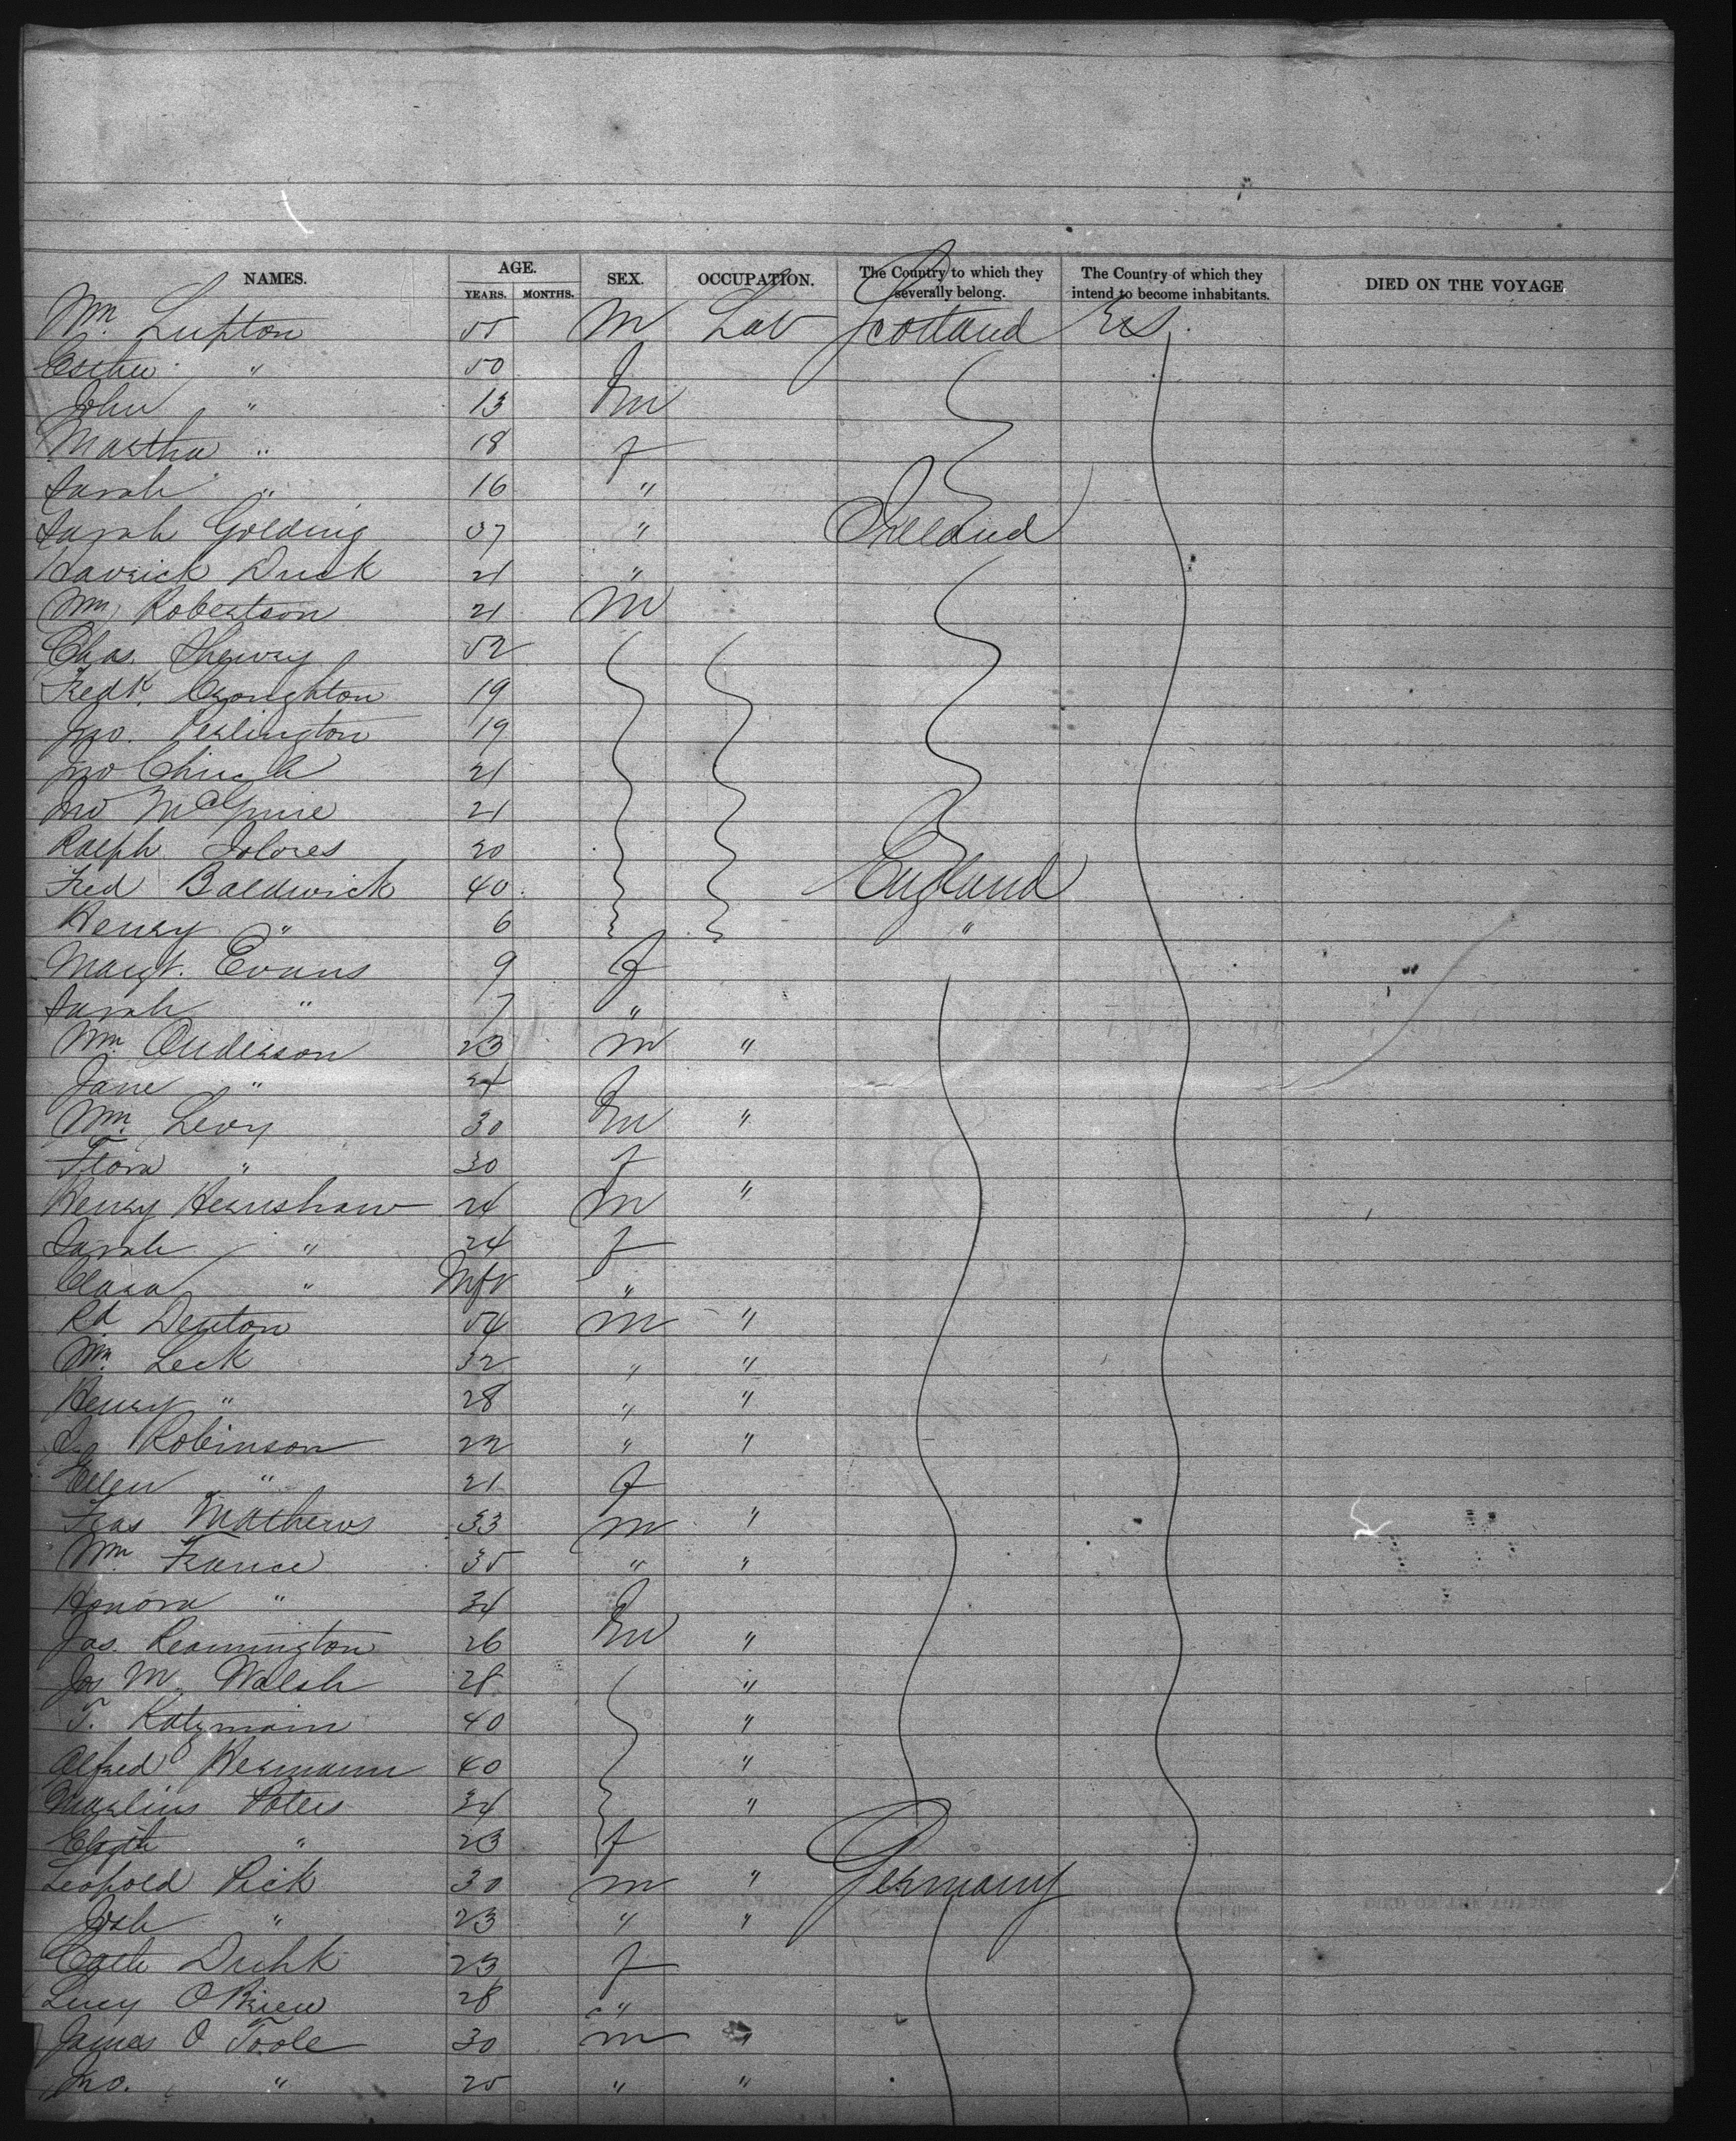 NAMES. AGE. SEX. OCCUPATION. The Country to which they severally belong. The Country of which they intend to become inhabitants. DIED ON THE VOYAGE.
YEARS. MONTHS.
Wm. Lupton 55 M Lab Scotland
" 50 f
John " 13 m
Martha " 18 f
Sarah " 16 "
Sarah Golding 37 " Ireland
Duck 21 "
Wm Robertson 21 M
Chas. 52
Fredk. 19
Jno. 19
Jno 21
Jno McGuire 21
Ralph 20
Fred Baldwick 40 England
Henry " 6 "
Margt. Evans 9 f
Sarah " 7 "
Wm. Anderson 23 m "
Jane " 24 f
Wm. Levy 30 m "
Flora " 30 f
Henry Hernshaw 24 m "
Sarah " 24 f
Clara " Inft "
Rd Denton 54 m "
Wm. Leck 32 " "
Henry " 28 " "
Robinson 22 " "
Ellen " 21 f
Fras Mathews 33 m "
Wm. France 35 " "
Honora " 34 f
Jas. Reamington 26 m "
Jos M. Walsh 28 "
T. Katzmain 40 "
Alfred Hermann 40 "
Peters 34 "
" 23 f
Leopold Pick 30 m " Germany
Josh " 23 " "
Cath 23 f
Lucy O'Brien 28 "
James O Toole 30 m "
Jno. " 25 " "